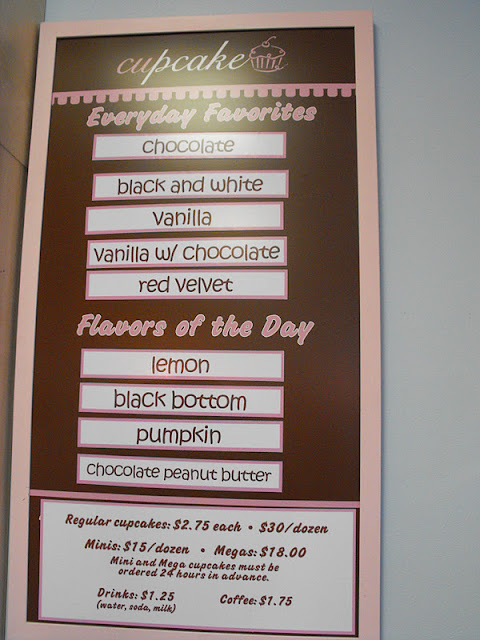 cupcake
Everyday Favorites
chocolate
black and white
vanilla
vanilla w/ chocolate
red velvet
Flavors of the Day
lemon
black bottom
pumpkin
chocolate peanut butter
Regular cupcakes: $2.75 each • $30/dozen
Minis: $15/dozen • Megas: $18.00
Mini and Mega cupcakes must be
ordered 24 hours in advance.
Drinks: $1.25 Coffee: $1.75
(water, soda, milk)